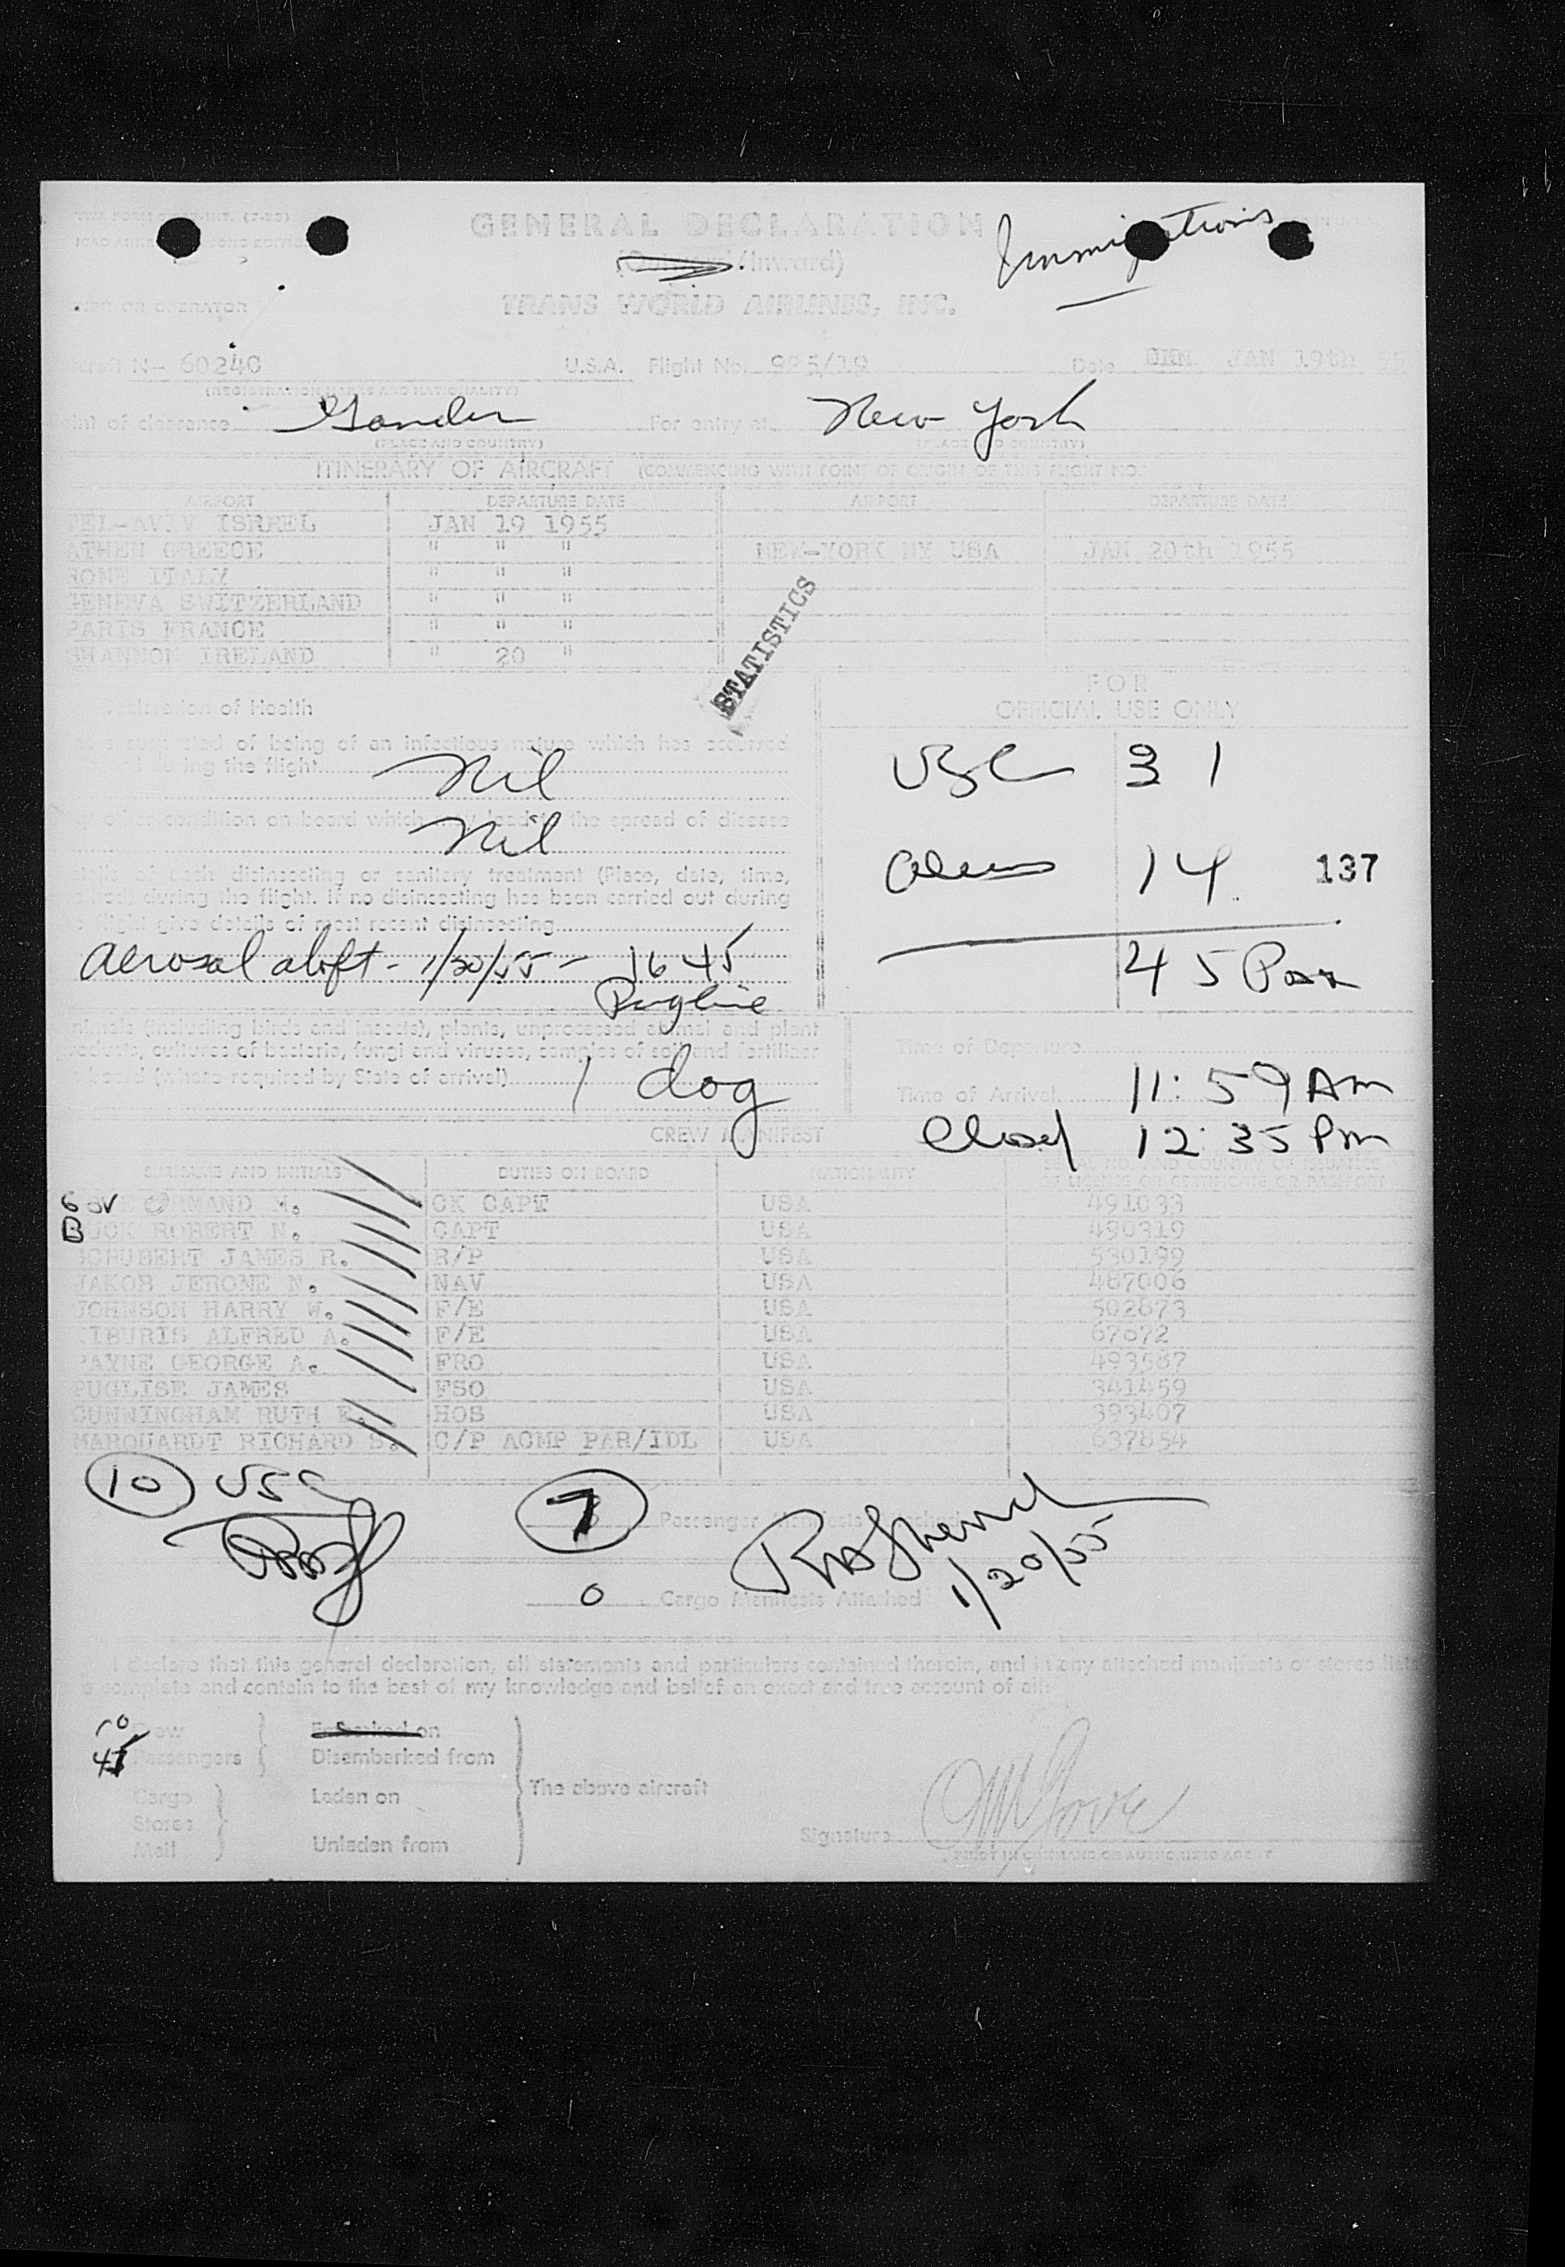 GENERAL DECLARATION
Immigrations
(Outward/Inward)
OR OPERATOR
TRANS WORLD AIRLINES, INC.
N- 6024C U.S.A. Flight No. 985/19 Date JAN 19th
(REGISTRATION MARKS AND NATIONALITY)
Point of clearance Gander For entry at New York
(PLACE AND COUNTRY) (PLACE AND COUNTRY)
ITINERARY OF AIRCRAFT (COMMENCING WITH POINT OF ORIGIN OF THIS FLIGHT NO.
AIRPORT DEPARTURE DATE AIRPORT DEPARTURE DATE
TEL-AVIV ISREEL JAN 19 1955
ATHEN GREECE " " " NEW-YORK NY USA JAN 20th 1955
ROME ITALY " " "
GENEVA SWITZERLAND " " "
PARIS FRANCE " " "
SHANNON IRELAND " 20 "
STATISTICS
FOR
OFFICIAL USE ONLY
Declaration of Health
suspected of being of an infectious nature which has occurred
during the flight Nil
USC 31
condition on board which may lead to the spread of disease
Nil
Aliens 14
137
disinsecting or sanitary treatment (Place, date, time,
during the flight. If no disinsecting has been carried out during
flight give details of most recent disinsecting
Aerosal aloft - 1/20/55 - 1645
Puglise
45 Pax
animals (including birds and insects), plants, unprocessed animal and plant
products, cultures of bacteria, fungi and viruses, samples of soil and fertilizer
board (where required by State of arrival) 1 dog
Time of Departure
Time of Arrival 11:59 Am
Closed 12:35 Pm
CREW MANIFEST
SURNAME AND INITIALS DUTIES ON BOARD NATIONALITY
ORMAND M. CK CAPT USA 491033
BUCK ROBERT N. CAPT USA 490319
SCHUBERT JAMES R. R/P USA 530199
JAKOB JEROME N. NAV USA 487006
JOHNSON HARRY W. F/E USA 502873
ALFRED A. F/E USA 67672
PAYNE GEORGE A. FRO USA 493587
PUGLISE JAMES FSO USA 341459
CUNNINGHAM RUTH E. HOS USA 393407
MARQUARDT RICHARD S. C/P ACMP PAR/IDL USA 637854
10 USC
7 Passenger Manifests Attached
1/20/55
0 Cargo Manifests Attached
I declare that this general declaration, all statements and particulars contained therein, and in any attached manifests or stores lists
complete and contain to the best of my knowledge and belief an exact and true account of all:
10 Crew Embarked on
45 Passengers Disembarked from
The above aircraft
Cargo Laden on
Stores
Mail Unladen from
Signature
PILOT IN COMMAND OR AUTHORIZED AGENT